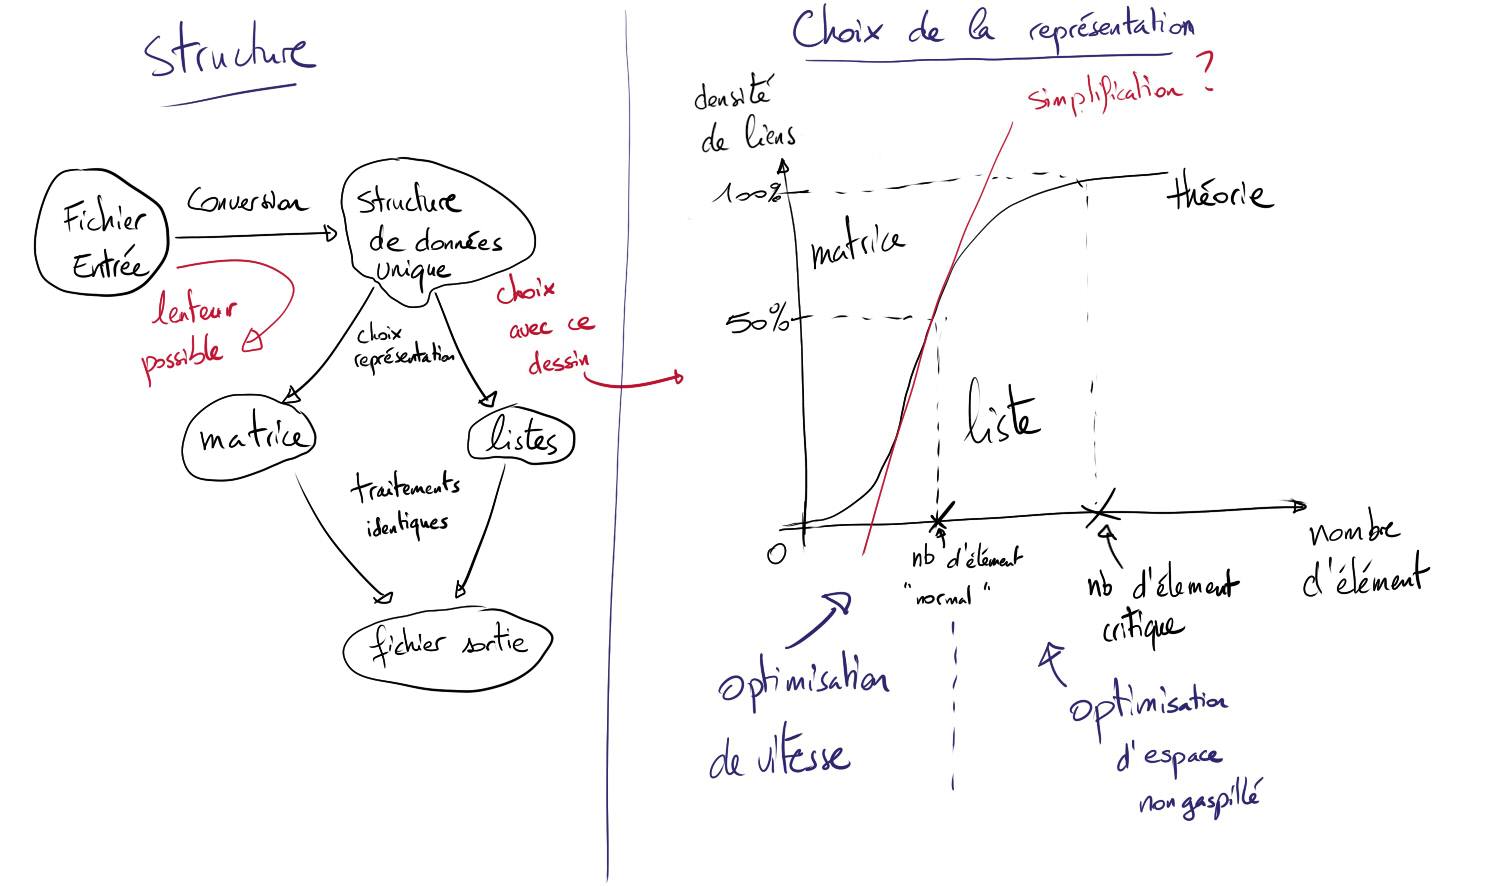 Structure
Fichier
Entrée
Conversion
Structure
de données
unique
lenteur
possible
choix
représentation
choix
avec ce
dessin
matrice
listes
traitements
identiques
fichier sortie
Choix de la représentation
densité
de liens
simplification ?
100%
théorie
matrice
50%
liste
0
nb d'élément
"normal"
nb d'élement
critique
nombre
d'élément
optimisation
de vitesse
optimisation
d'espace
non gaspillé